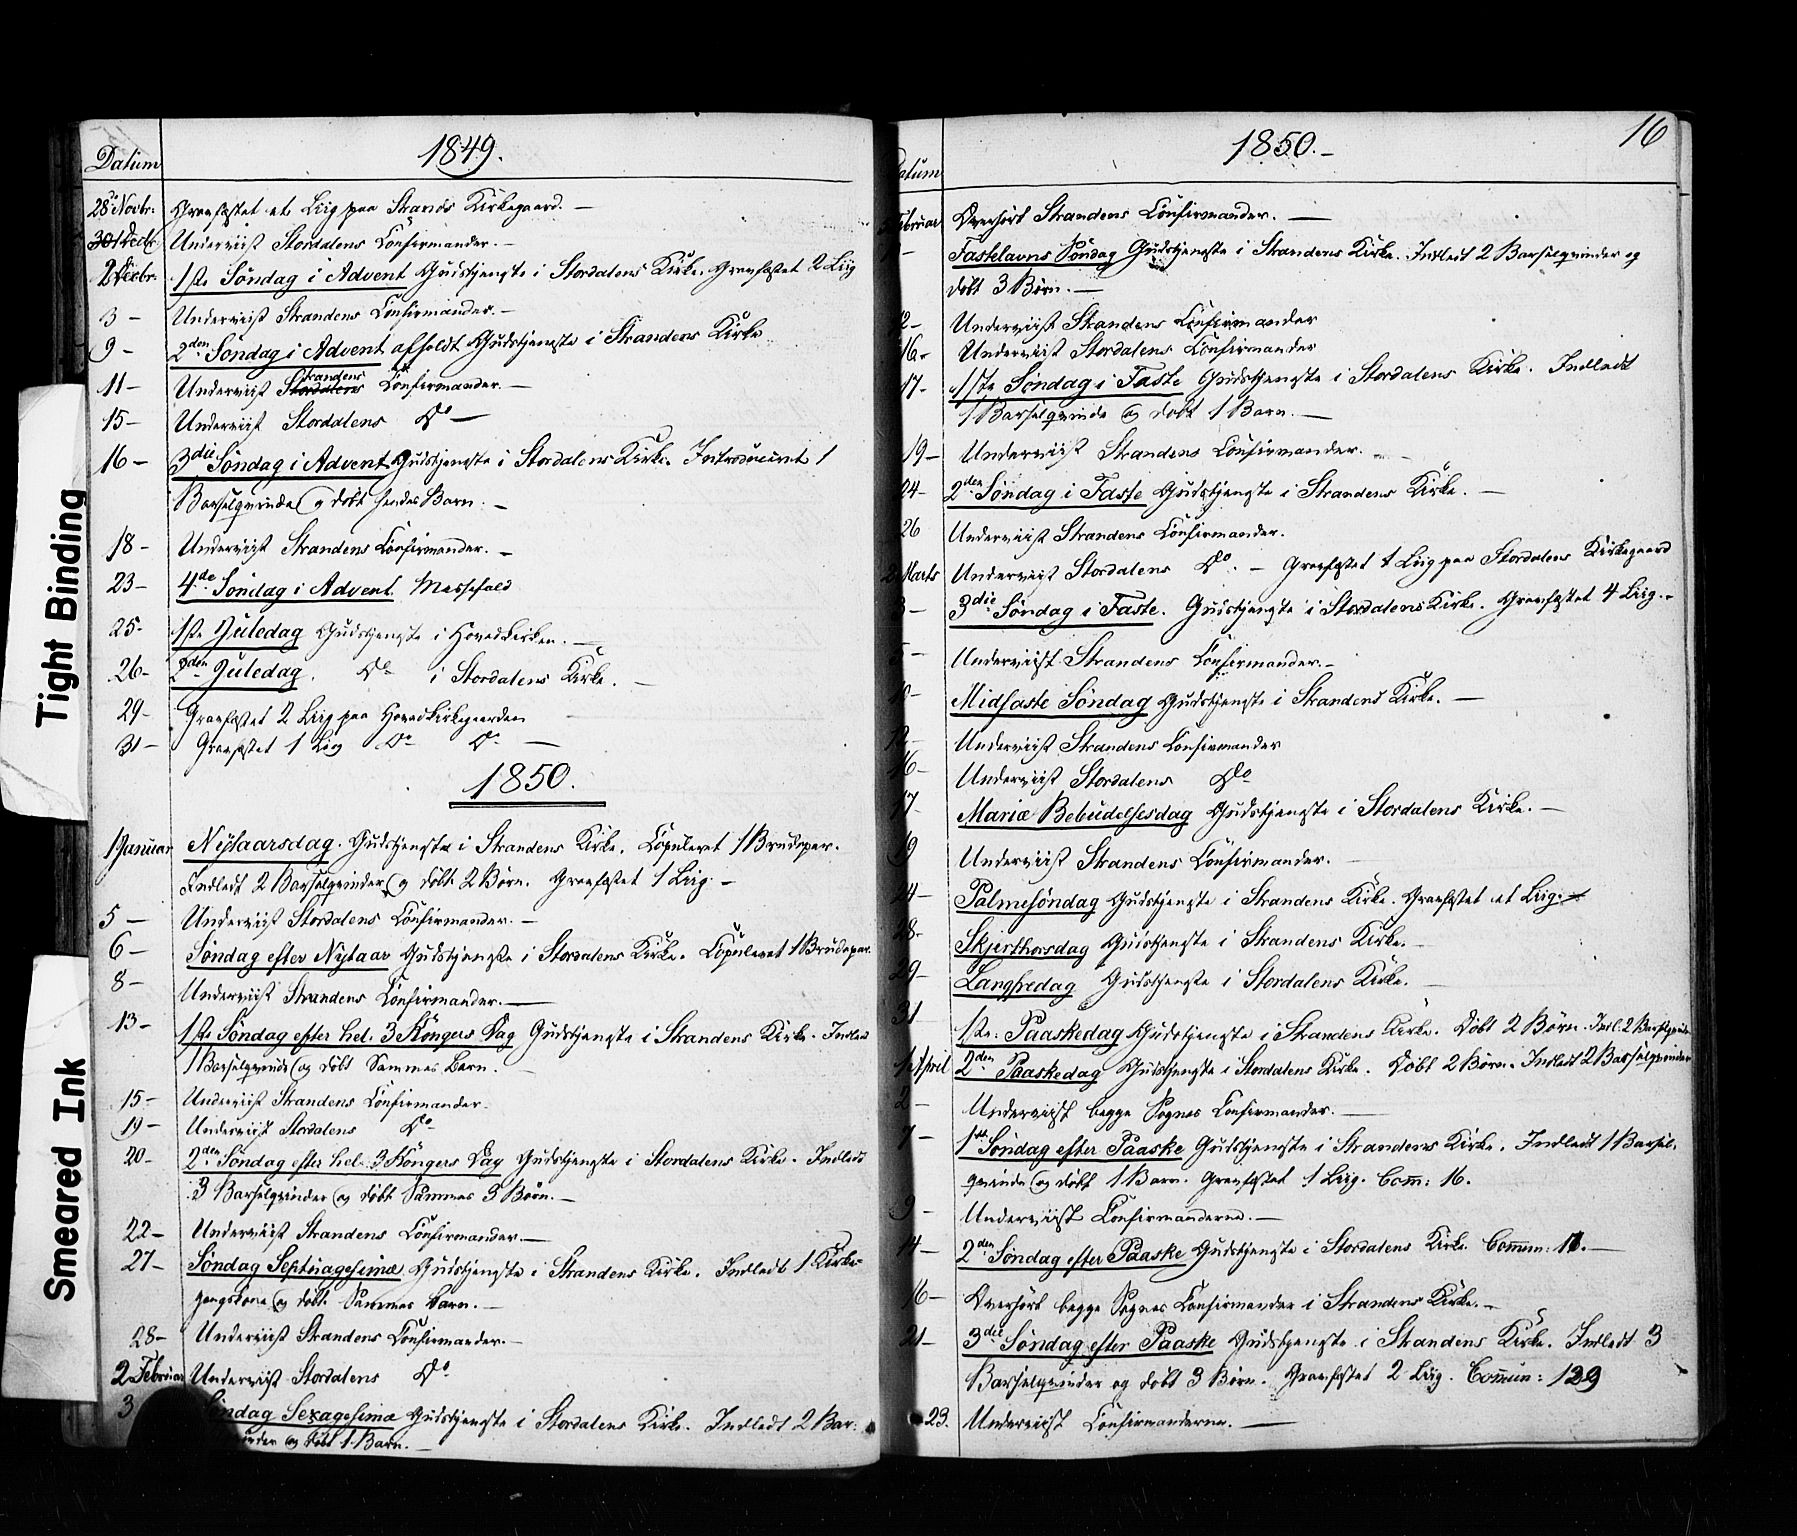 Tight Binding
Smeared Ink
Datum
1849.
28 Novbr: Gravfæstet et Liig paa Strands Kirkegaard. —
Underviist Stordalens Confirmander. —
2 Decbr: 1ste Søndag i Advent Gudstjeneste i Stordalens Kirke. Gravfæstet 2 Liig
3 — Underviist Strandens Confirmander. —
9 — 2den Søndag i Advent afholdt Gudstjeneste i Strandens Kirke
11 — Underviist Strandens Confirmander. —
15 — Underviist Stordalens Do —
16 — 3die Søndag i Advent Gudstjeneste i Stordalens Kirke. Introduceret 1
Barselqvinde og døbt hendes Barn. —
18 — Underviist Strandens Confirmander. —
23 — 4de Søndag i Advent. Messefald
25 - 1ste Juledag Gudstjeneste i Hovedkirken. —
26 - 2den Juledag. Do i Stordalens Kirke. —
29 - Gravfæstet 2 Liig paa Hovedkirkegaarden
31 — Gravfæstet 1 Liig Do Do —
1850.
1 Januar Nytaarsdag. Gudstjeneste i Strandens Kirke. Copuleret 1 Brudepar.
Indledt 2 Barselqvinder og døbt 2 Børn. Gravfæstet 1 Liig. —
5 — Underviist Stordalens Confirmander. —
6 — Søndag efter Nytaar Gudstjeneste i Stordalens Kirke. Copuleret 1 Brudepar.
8 — Underviist Strandens Confirmander. —
13 — 1ste Søndag efter hel. 3 Kongers Dag Gudstjeneste i Strandens Kirke. Indledt
1 Barselqvinde og døbt Sammes Barn. —
15 — Underviist Strandens Confirmander.
19 — Underviist Stordalens Do
20 - 2den Søndag efter hel. 3 Kongers Dag Gudstjeneste i Stordalens Kirke. Indledt
3 Barselqvinder og døbt Sammes 3 Børn. —
22 — Underviist Strandens Confirmander. —
27 — Søndag Septuagesimæ Gudstjeneste i Strandens Kirke. Indledt 1 Kirke-
gangskone og døbt Sammes Barn. —
28 — Underviist Strandens Confirmander. —
2 Februar Underviist Stordalens Do
3 Søndag Sexagesimæ Gudstjeneste i Stordalens Kirke. Indledt 2 Bar-
og døbt 1 Barn. —
16
1850. —
Datum
Februar Overhørt Strandens Confirmander. —
Fastelavns Søndag Gudstjeneste i Strandens Kirke. Indledt 2 Barselqvinder og
døbt 3 Børn. —
12 — Underviist Strandens Confirmander
16 - Underviist Stordalens Confirmander
17 - 1ste Søndag i Faste Gudstjeneste i Stordalens Kirke. Indledt
1 Barselqvinde og døbt 1 Barn. —
19 — Underviist Strandens Confirmander. —
24 — 2den Søndag i Faste Gudstjeneste i Strandens Kirke. —
26 Underviist Strandens Confirmander.
2 Marts Underviist Stordalens Do. — Gravfæstet 1 Liig paa Stordalens Kirkegaard
3 — 3die Søndag i Faste. Gudstjeneste i Stordalens Kirke. Gravfæstet 4 Liig. -
5 — Underviist Strandens Confirmander. —
10 — Midfaste Søndag Gudstjeneste i Strandens Kirke. —
12 — Underviist Strandens Confirmander
16 — Underviist Stordalens Do
17 - Mariæ Bebudelsesdag Gudstjeneste i Stordalens Kirke. —
19 Underviist Strandens Confirmander. —
24 — Palmesøndag Gudstjeneste i Strandens Kirke. Gravfæstet et Liig. —
28 - Skjerthorsdag Gudstjeneste i Strandens Kirke. —
29 — Langfredag Gudstjeneste i Stordalens Kirke. —
31 1ste Paaskedag Gudstjeneste i Strandens Kirke. Døbt 2 Børn. Indl. 2 Barselqvinder
1 April 2den Paaskedag Gudstjeneste i Stordalens Kirke. Døbt 2 Børn. Indledt 2 Barselqvinder
2 — Underviist begge Sognes Confirmander. —
7 — 1ste Søndag efter Paaske Gudstjeneste i Strandens Kirke. Indledt 1 Barsel-
qvinde og døbt 1 Barn. Gravfæstet 1 Liig. Com: 16.
9 — Underviist Confirmanderne. —
14 — 2den Søndag efter Paaske Gudstjeneste i Stordalens Kirke. Commun: 11. —
16 — Overhørt begge Sognes Confirmander i Strandens Kirke. —
21 — 3die Søndag efter Paaske Gudstjeneste i Strandens Kirke. Indledt 3
Barselqvinder og døbt 3 Børn. Gravfæstet 2 Liig. Commun: 129
23. Underviist Confirmanderne. —